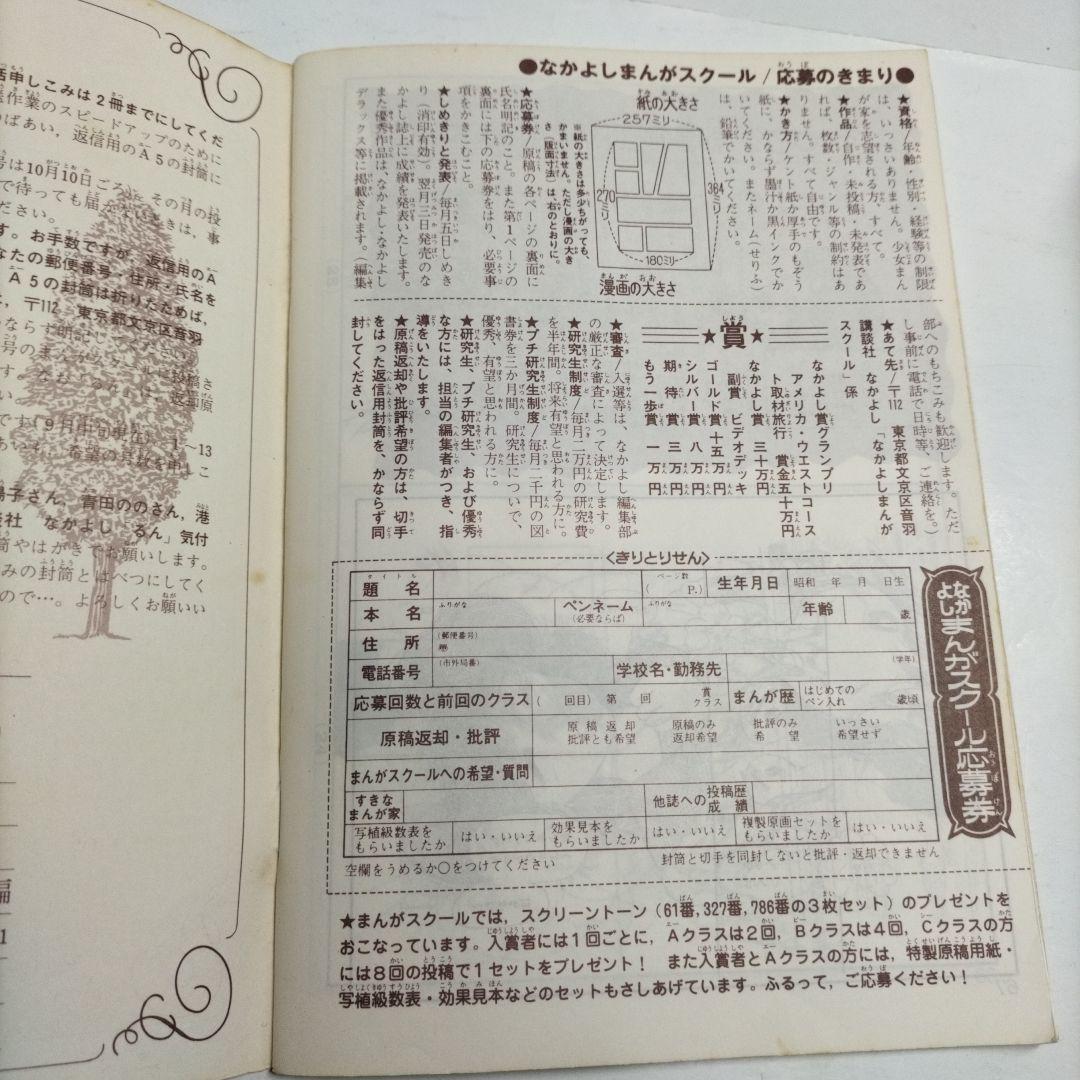 話申しこみは2冊までにしてくだ
作業のスピードアップのために
ばあい，返信用のA5の封筒に
号は10月10日ごろ，その月の投
で待っても届かないときは，事
ださい。
す。お手数ですが，返信用のA
なたの郵便番号，住所・氏名を
A5の封筒は折りたためば，
〒112 東京都文京区音羽
ならず明記し
号のまっ
です（9月中旬現在）1～13
陽子さん，青田ののさん，港
談社 なかよし るん」気付
筒やはがきでお願いします。
みの封筒とはべつにしてく
ので…。よろしくお願いい
編
1
●なかよしまんがスクール／応募のきまり●
★資格／年齢・性別・経験等の制限
は、いっさいありません。少女まん
が家を志望される方、すべて。
★作品／自作・未投稿・未発表であ
れば、枚数・ジャンル等の制約はあ
りません。すべて自由です。
★かき方／ケント紙か厚手のもぞう
紙に、かならず墨汁か黒インクでか
いてください。またネーム（せりふ）
は、鉛筆でかいてください。
紙の大きさ
257ミリ
364ミリ
270ミリ
180ミリ
漫画の大きさ
※紙の大きさは多少ちがっても、
かまいません。ただし漫画の大き
さ（版面寸法）は右のとおりに。
★応募券／原稿の各ページの裏面に
氏名明記のこと。また第1ページの
裏面には下の応募券をはり、必要事
項をかきこむこと。
★しめきりと発表／毎月五日しめき
り（消印有効）。翌月三日発売のな
かよし誌上に成績を発表いたします。
また優秀作品は、なかよし・なかよし
デラックス等に掲載されます。（編集
部へのもちこみも歓迎します。ただ
し事前に電話で日時等、ご連絡を。）
★あて先／〒112 東京都文京区音羽
講談社 なかよし「なかよしまんが
スクール」係
★賞★
なかよし賞グランプリ
アメリカ・ウエストコース
ト取材旅行 賞金五十万円
なかよし賞 三十万円
副賞 ビデオデッキ
ゴールド賞 十五万円
シルバー賞 八万円
期待賞 三万円
もう一歩賞 一万円
★審査／入選等は、なかよし編集部
の厳正な審査によって決定します。
★研究生制度／毎月二万円の研究費
を半年間。将来有望と思われる方に。
★プチ研究生制度／毎月二千円の図
書券を三か月間。研究生についで、
優秀、有望と思われる方に。
★研究生、プチ研究生、および優秀
な方には、担当の編集者がつき、指
導をいたします。
★原稿返却や批評希望の方は、切手
をはった返信用封筒を、かならず同
封してください。
〈きりとりせん〉
なかよしまんがスクール応募券
題名 ページ数 （ P.） 生年月日 昭和 年 月 日生
本名 ふりがな ペンネーム（必要ならば） ふりがな 年齢 歳
住所 （郵便番号） 〒
電話番号 （市外局番） 学校名・勤務先 （学年）
応募回数と前回のクラス （ 回目）第 回 賞 クラス まんが歴 はじめてのペン入れ 歳頃
原稿返却・批評 原稿返却批評とも希望 原稿のみ返却希望 批評のみ希望 いっさい希望せず
まんがスクールへの希望・質問
すきなまんが家 他誌への投稿歴成績
写植級数表をもらいましたか はい・いいえ 効果見本をもらいましたか はい・いいえ 複製原画セットをもらいましたか はい・いいえ
空欄をうめるか○をつけてください 封筒と切手を同封しないと批評・返却できません
★まんがスクールでは，スクリーントーン（61番,327番,786番の3枚セット）のプレゼントを
おこなっています。入賞者には1回ごとに，Aクラスは2回，Bクラスは4回，Cクラスの方
には8回の投稿で1セットをプレゼント！ また入賞者とAクラスの方には，特製原稿用紙・
写植級数表・効果見本などのセットもさしあげています。ふるって，ご応募ください！